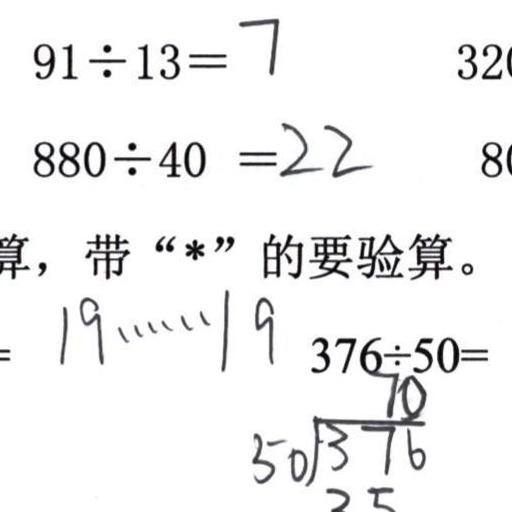 91÷13=7 320
880÷40 =22 80
算，带“*”的要验算。
= 19……19 376÷50=
70
50)376
35